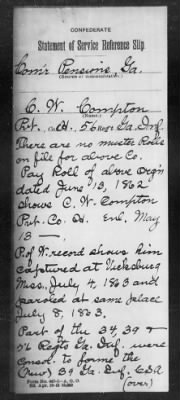 CONFEDERATE
Statement of Service Reference Slip.
Com'r Pensions, Ga.
C. W. Compton
(Name.)
Pvt., Co. H, 56 Regt Ga. Inf.
There are no muster Rolls
on file for above Co.
Pay Roll of above Org'n
dated June 13, 1862
shows C. W. Compton
Pvt. Co. H. Enl. May
13 —.
P. of W. record shows him
captured at Vicksburg
Miss, July 4, 1863 and
paroled at same place
July 8, 1863.
Part of the 34, 39 &
56 Regts Ga. Inf. were
consol. to form the
(New) 39 Ga. Inf. CSA
(over)